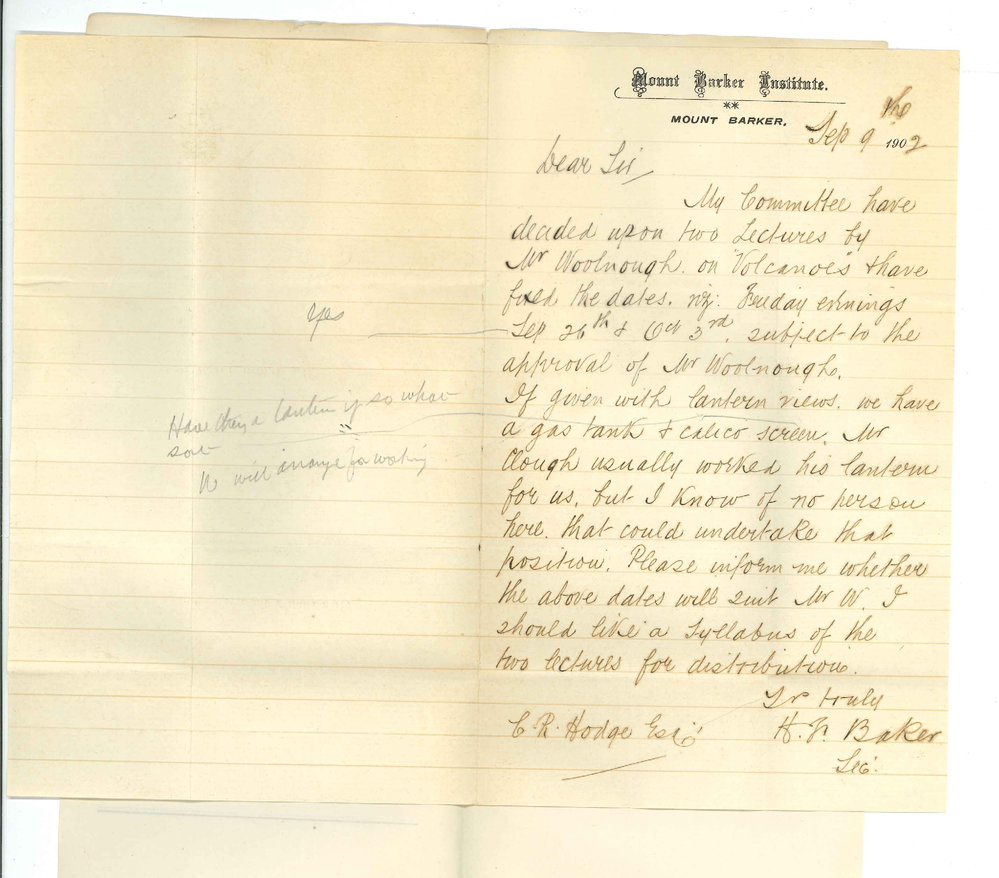 Mount Barker Institute.
MOUNT BARKER,
Sep 9th 1902
Dear Sir
My Committee have
decided upon two Lectures by
Mr Woolnough. on "Volcanoes" & have
fixed the dates. viz: Friday evenings
Sep 26th & Oct 3rd, subject to the
approval of Mr Woolnough.
If given with lantern views. we have
a gas tank & calico screen. Mr
Clough usually worked his lantern
for us, but I know of no person
here. that could undertake that
position. Please inform me whether
the above dates will suit Mr W. I
should like a Syllabus of the
two lectures for distribution.
Yr truly
C. R. Hodge Esq
H. F. Baker
Sec.
Yes
Have they a lantern if so what
sort
will arrange for working